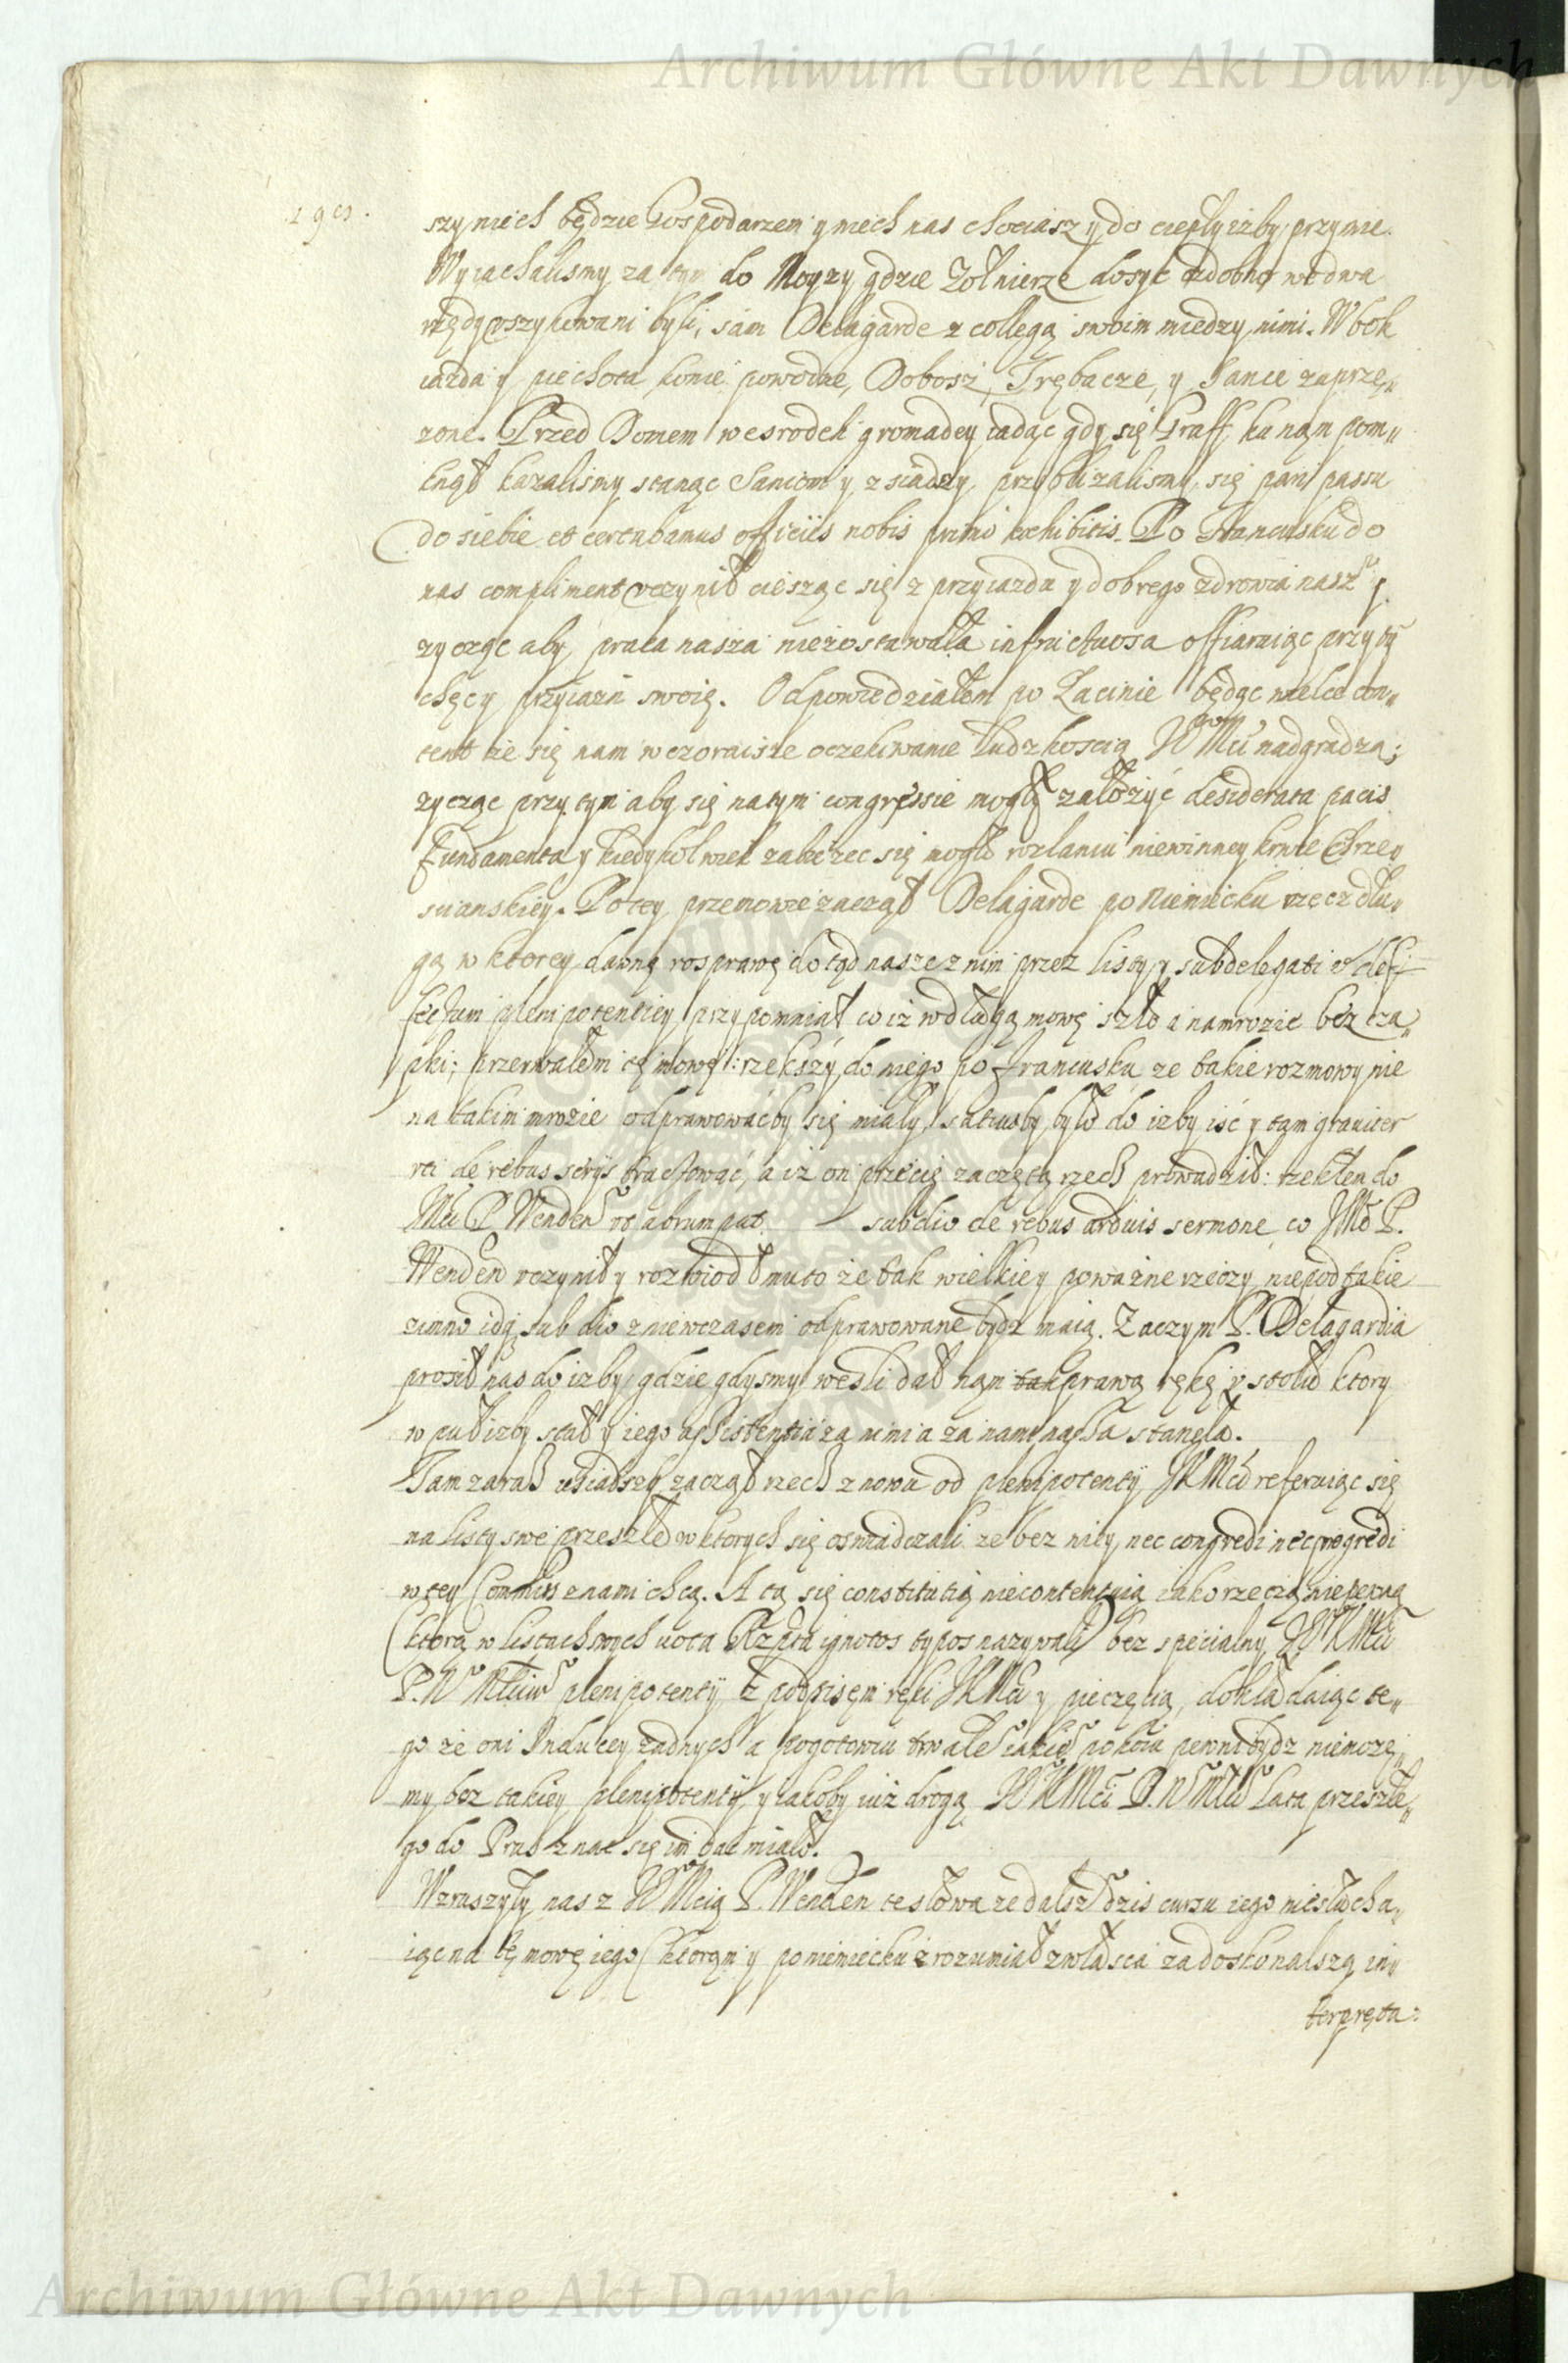 Archiwum Główne Akt Dawnych
szy niech będzie Gospodarzem y niech nas chociasz y do ciepły izby przymie.
Wyiachalismy za tym do Moyzy gdzie Zołnierze dosyć ozdobno we dwa
rzędy vszykowani byli, sam Delagarde z collegą swoim miedzy nimi. W bok
iazda y piechota, konie powodne, Dobosz, Trębacze, y Sanie zaprzę„
zone. Przed Domem we srodek gromadey iadąc gdy się Graff ku nąm pom„
knął kazalismy stanąc Saniom y z siadszy przyblizalismy się pari passu
do siebie et certabamus officiis nobis primo exhibitis. Po Francusku do
nas compliment vczynił ciesząc się z przyiazdu y dobrego zdrowia nasz y
zycząc aby praca nasza niezostawała infructuosa offiaruiąc przy ty
chęcy przyiazń swoię. Odpowiedziałem po Łacinie będąc wielce con„
tent ze się nam wczoraisze oczekiwanie ludzkoscią WMci nadgradza;
zycząc przy tym aby się na tym congressie mogły założyć desiderata pacis
fundamenta y kiedykolwiek zabiezec się mogło rozlaniu niewinney krwie Chrze„
scianskiey. Po tey przemowie zaczął Delagarde po Niemiecku rzecz dłu„
gą w ktorey dawną rosprawę dotąd nasze z nim przez listy y subdelegati et defe
ctum plenipotentiey przypomniał co iz w długą mowę szło a na mrozie bez cza„
pki; przerwałem tę mowę: rzekszy do niego po francusku ze takie rozmowy nie
na takim mrozie odprawowaćby się miały, satiusby było do izby iść y tam graviter
de rebus seriis tractować, a iz on przecię zaczętą rzecz prowadził: rzekłem do
JMci P. Wenden vt abrumpat sub dio de rebus arduis sermone, co JMć P.
Wenden vczynił y rozwiodł mu to że tak wielkie y poważne rzeczy nie pod takie
zimno idą sub dio z niewczasem odprawowane bydz maią. Zaczym P. Delagardia
prosił nas do izby, gdzie gdysmy weszli dał nąm tak prawą rękę v stołu ktory
w puł izby stał y iego assistentia za nim a za nami nasza stanęła.
Tam zaraz vsiadszy zaczął rzecz znowu od plenipotentÿ JKMci referuiąc się
na listy swe przeszłe w ktorych się oswiadczali ze bez niey nec congredi nec progredi
w tey Commiss z nami chcą. A tą się constitutią niecontentuią iako rzeczą niepewną
(ktorą w listach swych vota Rzptey ignotos typos nazywali) bez specialny JKMci
P. N Młciw plenipotentÿ z podpisem ręki JKMci y pieczęcią, dokładaiąc te„
go że oni Inducy żadnych a pogotowiu trwałe iakie pokoiu pewni bydz niemożę„
my bez takiey plenipotentÿ y iakoby iuż drogą JKMci P. N Młci Lata przeszłe„
go do Prus znac się im dac miało.
Wzruszyły nas z JMcią P. Wenden te słowa ze dalsz discursu iego niesłucha„
iąc na tę mowę iego (ktorąm y po niemiecku zrozumiał zwłasca za doskonalszą in„
terpreta:
Archiwum Główne Akt Dawnych